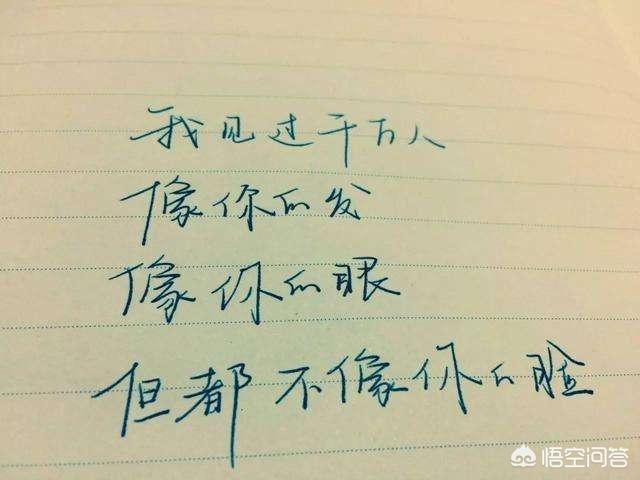 我见过千万人
像你的发
像你的眼
但都不像你的脸
悟空问答